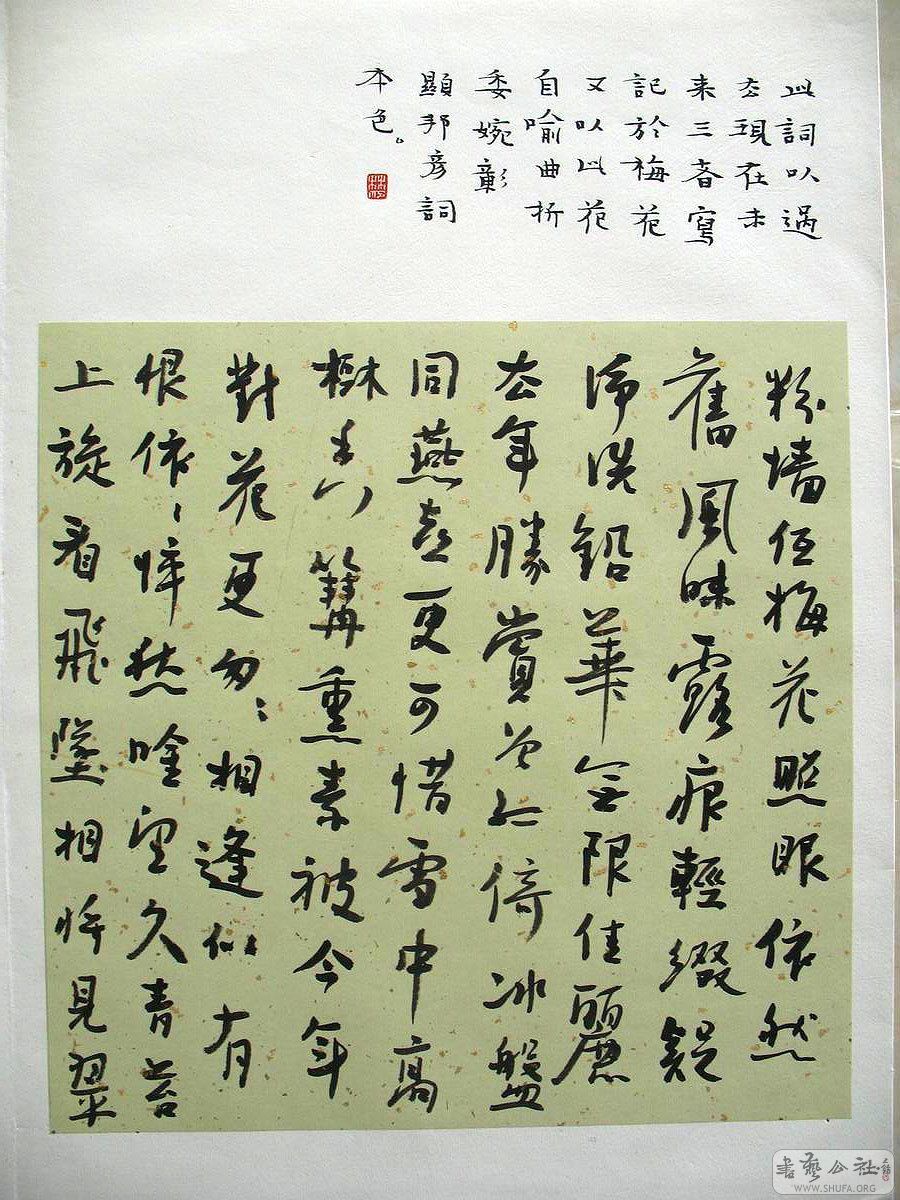 此詞以過
去現在未
来三者寫
記於梅花
又以此花
自喻曲折
委婉彰
顯邦彦詞
本色。
粉墻低梅花照眼依然
舊風味露痕輕綴疑
净洗鉛華無限佳麗
去年勝賞曾孤倚冰盤
同燕喜更可惜雪中高
樹香篝熏素被今年
對花更匆々相逢似有
恨依々悴愁吟望久青苔
上旋看飛墜相將見翠
書藝公社
WWW.SHUFA.ORG